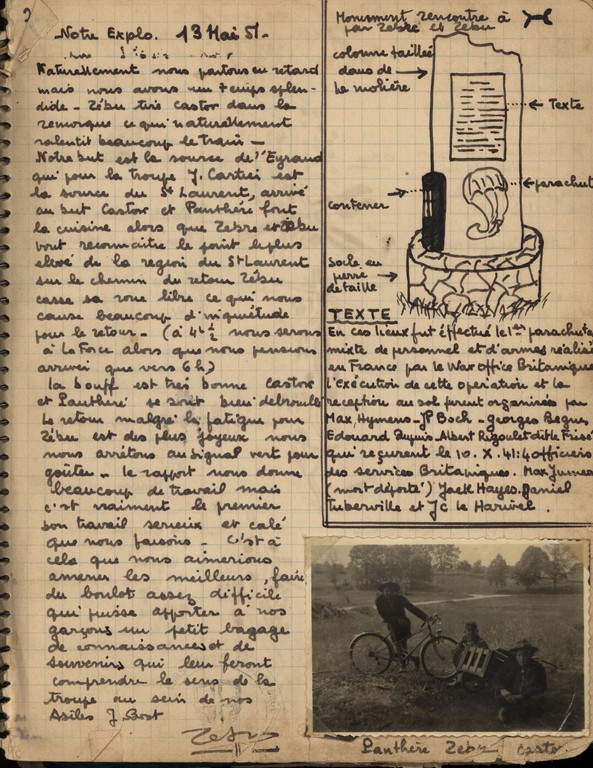 Notre Explo. 13 Mai 51.
Naturellement nous partons en retard
mais nous avons un temps splen-
dide - Zébu tire Castor dans la
remorque ce qui naturellement
ralentit beaucoup le train -
Notre but est la source de l'Eyraud
qui pour la troupe J. Cartier est
la source du St Laurent, arrivé
au but Castor et Panthère font
la cuisine alors que Zèbre et Zébu
vont reconnaitre le point le plus
elevé de la region du St Laurent
sur le chemin du retour Zébu
casse sa roue libre ce qui nous
cause beaucoup d'inquiétude
pour le retour - (à 4h ½ nous serons
à La Force alors que nous pensions
arriver que vers 6h)
La bouff est très bonne Castor
et Panthère se sont bien debrouillé
Le retour malgré la fatigue pour
Zébu est des plus joyeux nous
nous arrêtons au Signal vert pour
goûter - le rapport nous donne
beaucoup de travail mais
c'est vraiment le premier
bon travail serieux et calé
que nous faisons - C'est à
cela que nous aimerions
amener les meilleurs, faire
du boulot assez difficile
qui puisse apporter à nos
garçons un petit bagage
de connaissances et de
souvenirs qui leur feront
comprendre le sens de la
troupe au sein de nos
Asiles J. Bost
Monument rencontré à
par Zèbre et Zébu
colonne taillée
dans de
la molière
Texte
parachute
contener
Socle en
pierre
de taille
TEXTE
En ces lieux fut éffectué le 1er parachuta
mixte de personnel et d'armes réalisé
en France par le War office Britanique
L'exécution de cette operation et la
reception au sol furent organisées par
Max Hymens - JP Boch - Georges Begue,
Edouard Dupuis - Albert Rigoulet dit le Frisé
qui reçurent le 10. X. 41: 4 officiers
des services Britaniques. Max Jumeau
(mort déporté) Jack Hayes. Daniel
Tuberville et JC le Harivel.
Panthère Zébu Castor